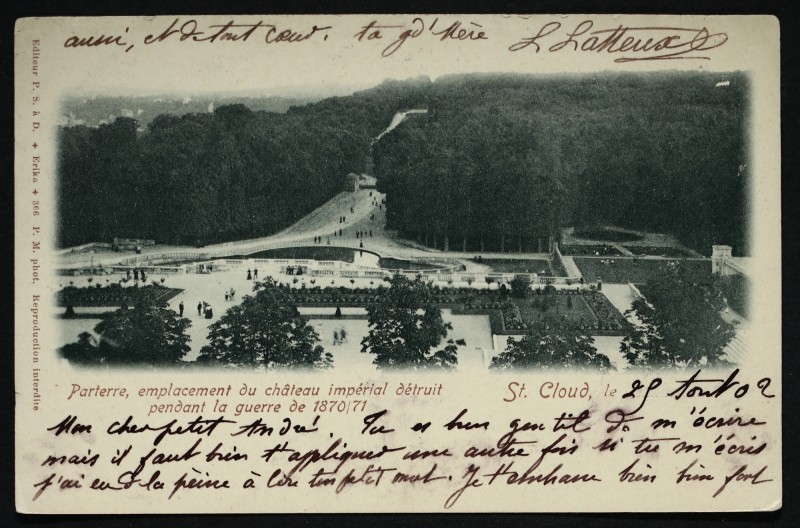 aussi, et de tout cœur. ta gd' Mère L Latteux
Editeur P. S. à D. ✦ Erika ✦ 366 P. M. phot. Reproduction interdite
Parterre, emplacement du château impérial détruit
pendant la guerre de 1870/71
St. Cloud, le 25 Aout 02
Mon cher petit André. Tu es bien gentil de m'écrire
mais il faut bien t'appliquer une autre fois si tu m'écris
j'ai eu de la peine à lire ton petit mot. Je t'embrasse bien bien fort